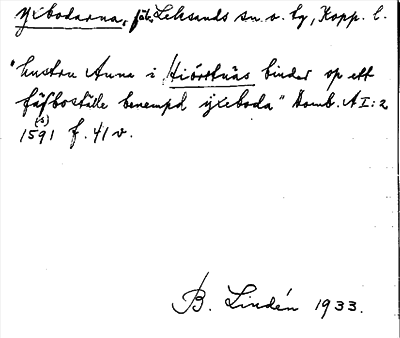 Yxbodarna, fäb. Leksands sn o. tg, Kopp. l.
"hustru Anna i Hiorttnäs binder op ett
fäfboställe benempd ÿxeboda" Domb. A I:2
1591 (s) f. 41 v.
B. Lindén 1933.